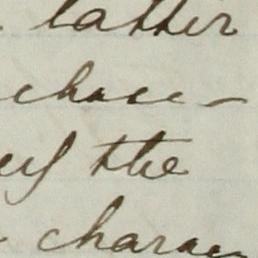 latter
chace-
the
charac